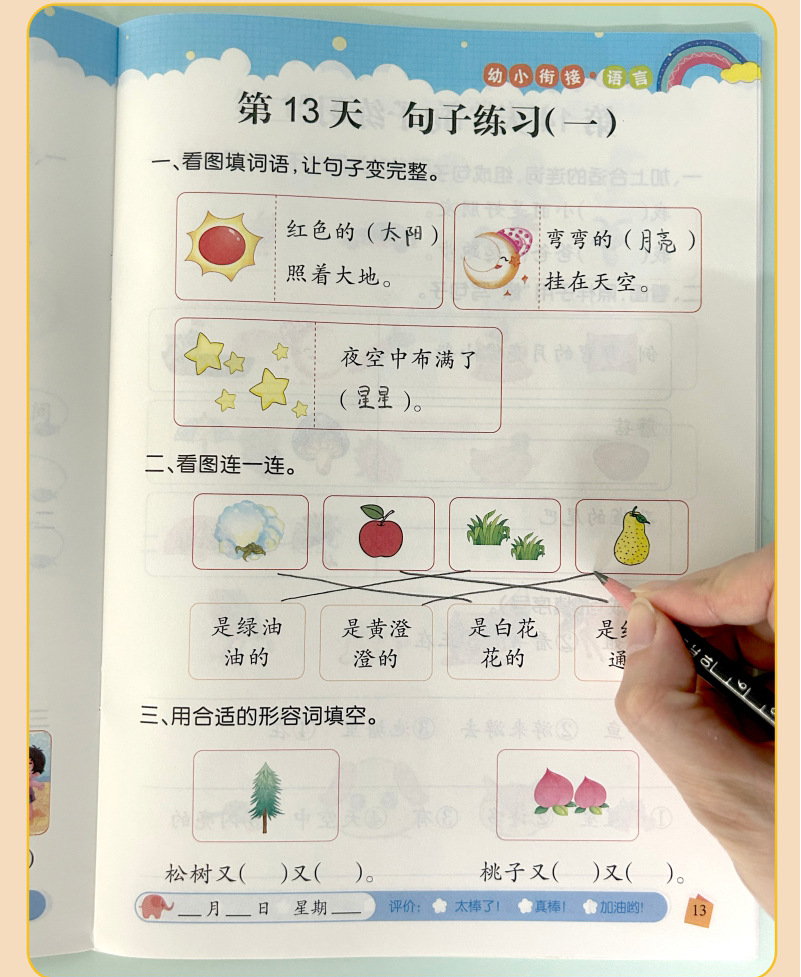 幼小衔接·语言
第13天 句子练习(一)
一、看图填词语,让句子变完整。
红色的(太阳)
照着大地。
弯弯的(月亮)
挂在天空。
夜空中布满了
(星星)。
二、看图连一连。
是绿油
油的
是黄澄
澄的
是白花
花的
是
通
三、用合适的形容词填空。
松树又( )又( )。
桃子又( )又( )。
__月__日 星期__
评价: 太棒了! 真棒! 加油哟!
13